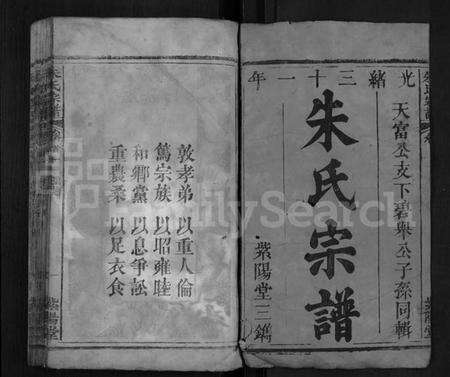 光緒三十一年
天富公支下碧與公子孫同輯
朱氏宗譜
紫陽堂三鐫
敦孝弟 以重人倫
篤宗族 以昭雍睦
和鄉黨 以息爭訟
重農桑 以足衣食
朱氏宗譜
紫陽堂
FamilySearch